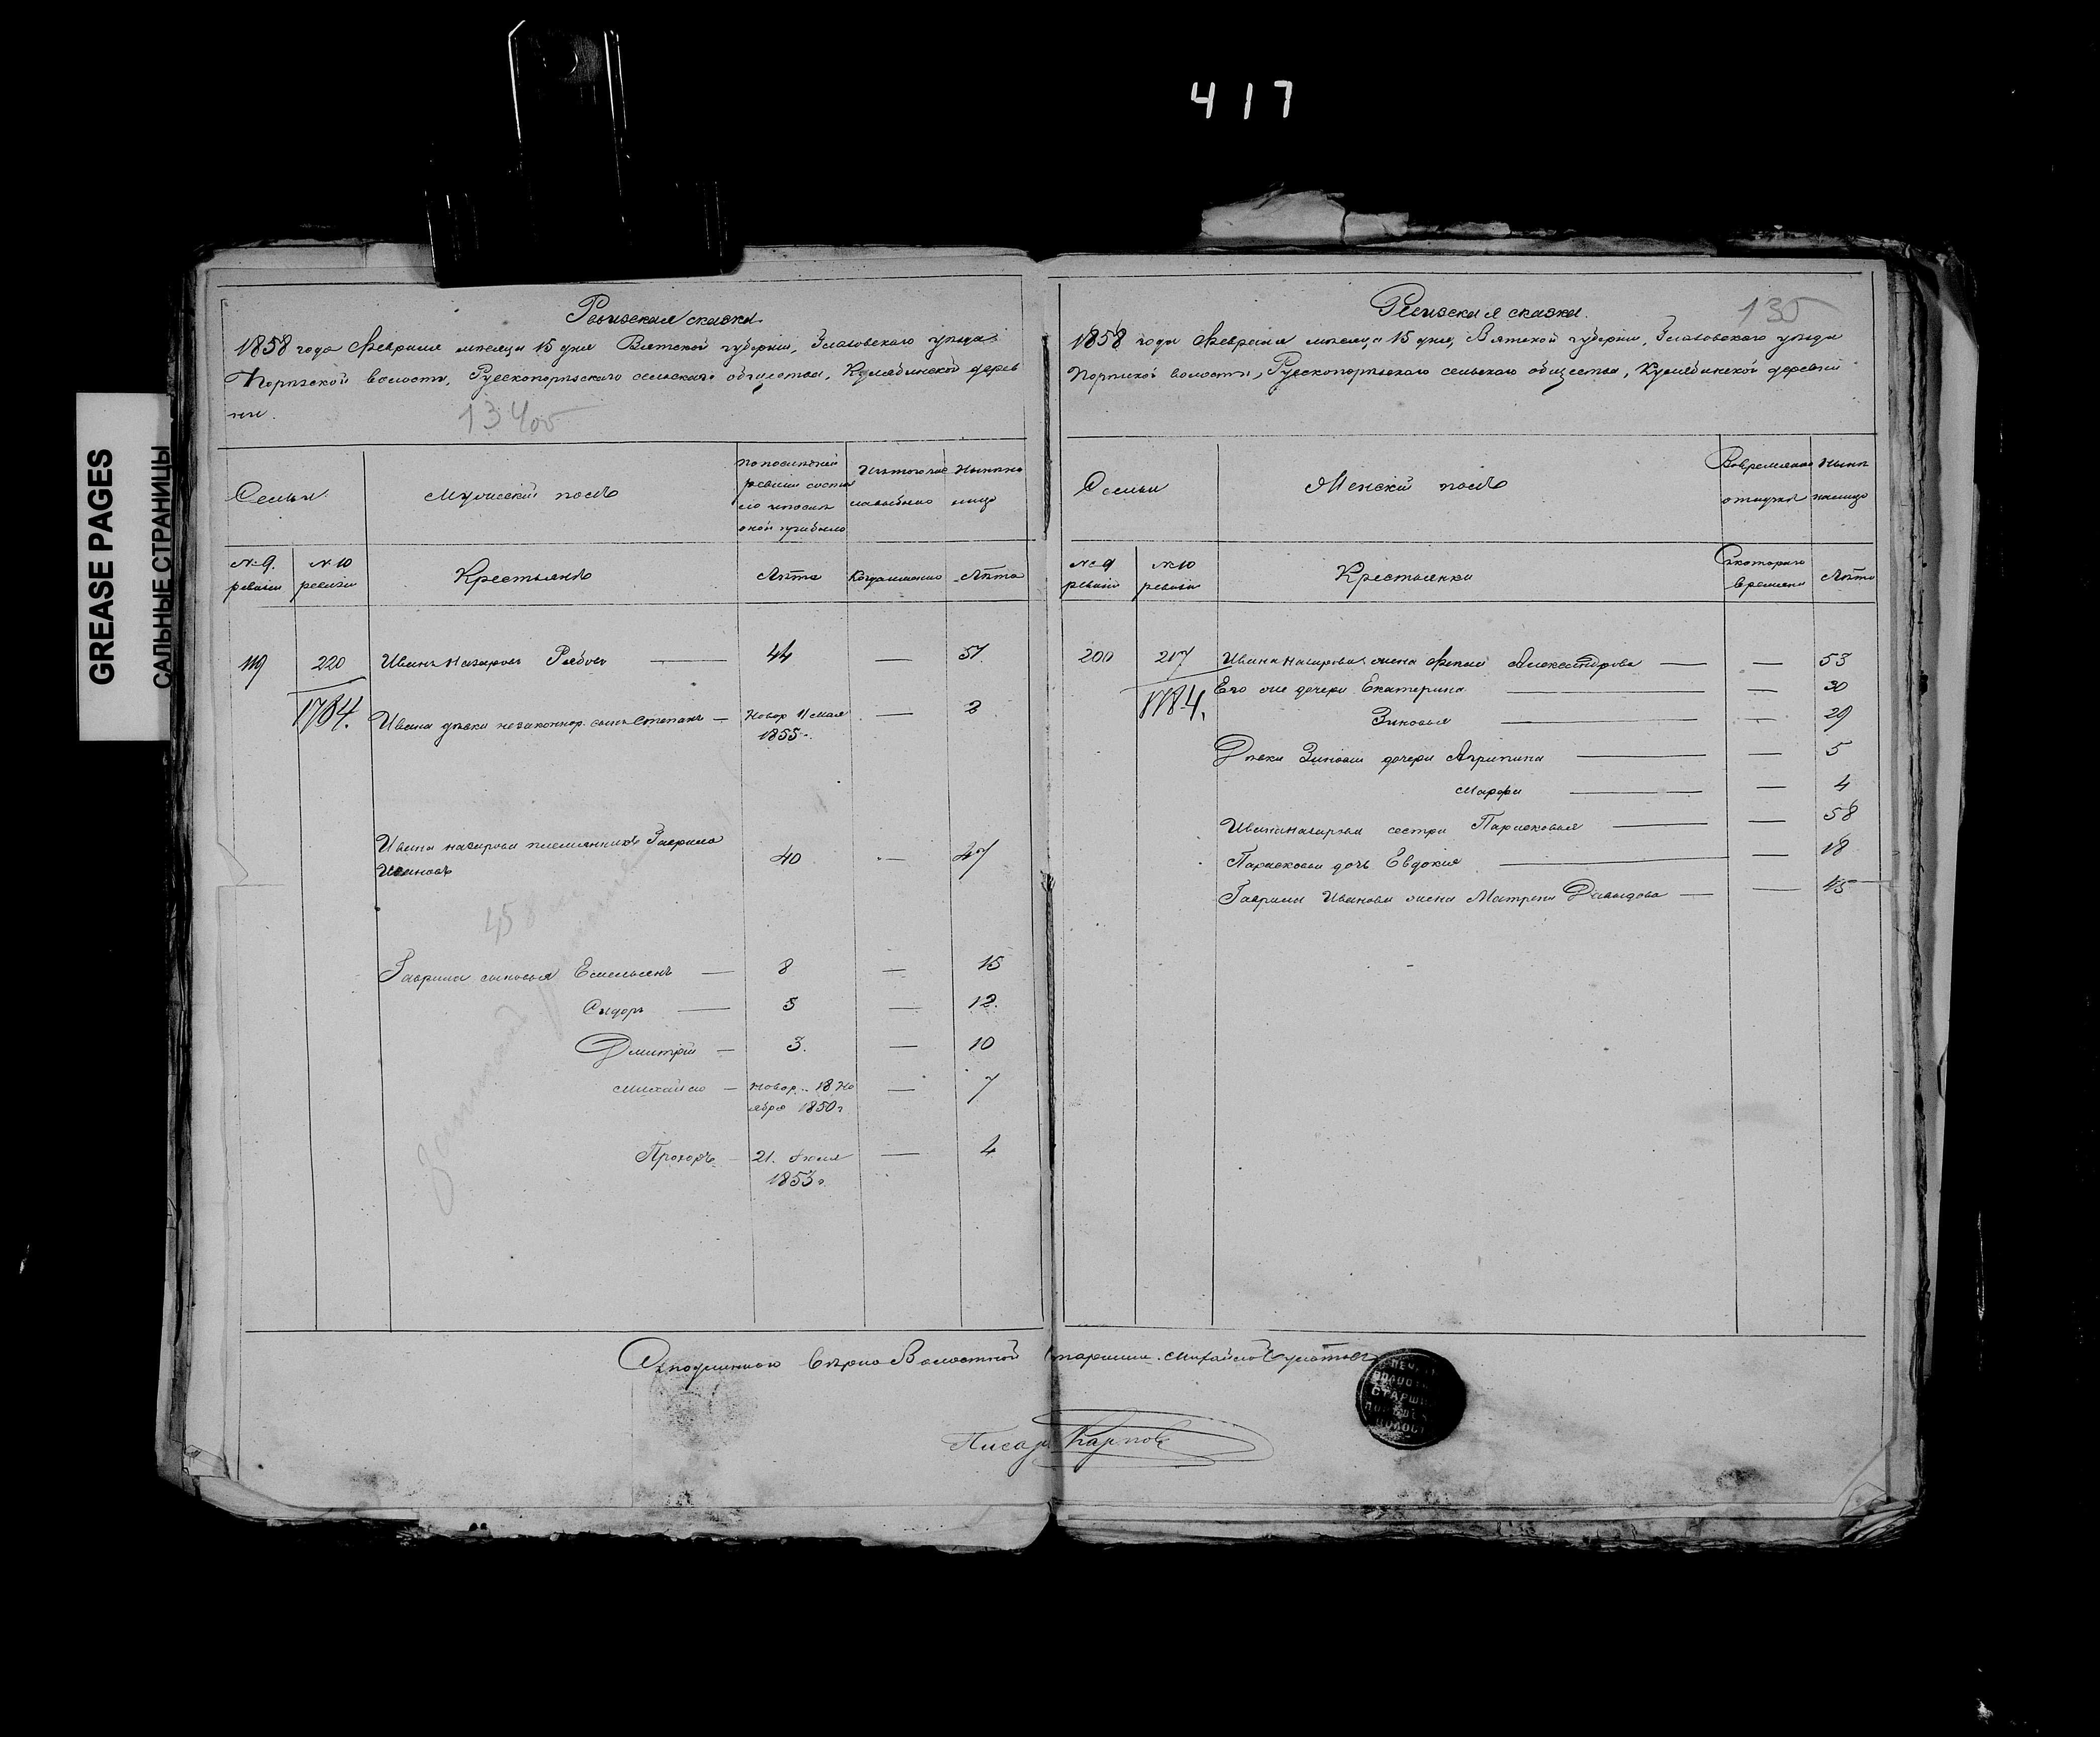 417
GREASE PAGES
САЛЬНЫЕ СТРАНИЦЫ
Ревизская сказка
1858 года Февраля месяца 15 дня Вятской губернии, Глазовскаго уезда
Порезской волости, Рускопорезскаго сельскаго общества, Кулябинской дерев
ни.
134об
Семьи
Мужеский полъ
По последней
ревизии состоя
ло и после
оной прибыло
Изъ того числа
выбыло
Ныне на
лицо
№ 9.
ревизии
№ 10
ревизии
Крестьянъ
Лѣта
Когда именно
Лѣта
119
220
Иванъ Назаровъ Рябовъ — 44 — 51.
1784.
Ивана девки незаконнор. сынъ Степанъ — Новор 11 мая
1855 — 2
Ивана Назарова племянникъ Гаврило
Ивановъ 40 — 47
Гаврила сыновья Емельянъ — 8 — 15
Сидоръ — 5 — 12.
Дмитрій — 3. — 10
Михайло — Новор. 18 Но
ября 1850 г — 7
Прохоръ — 21. Июля
1853 г. — 4
Ревизская сказка.
135
1858 года Февраля месяца 15 дня, Вятской губернии, Глазовскаго уезда
Порезской волости, Рускопорезскаго сельскаго общества, Кулябинской деревни
Семьи
Женскій полъ
Во временной
отлучкѣ
Ныне
налицо
№ 9
ревизіи
№ 10
ревизіи
Крестьянки
Съ котораго
времени
Лѣта
200
217
Ивана Назарова жена Фекла Александрова — — 53
1784.
Его же дочери Екатерина — — 30
Зиновья — — 29
Девки Зиновьи дочери Агрипина — — 5
Марфа — — 4
Ивана Назарова сестра Парасковья — — 58
Парасковьи дочь Евдокия — — 18
Гаврила Иванова жена Матрена Давыдова — — 45
Съ подлиннымъ верно Волостной старшина Михайло
Писарь Карповъ
СТАРШИ